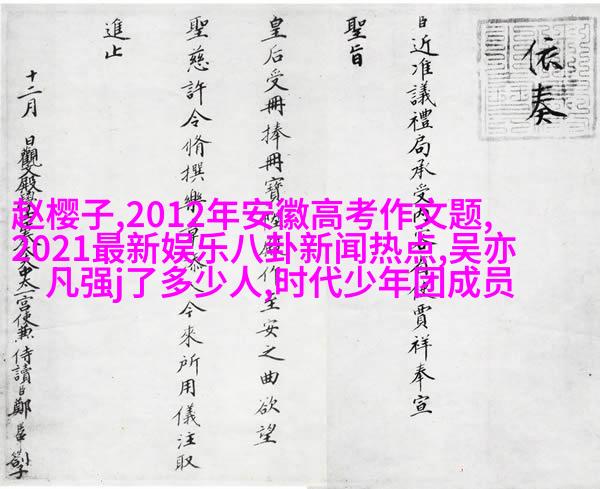 依奏
臣近准議禮局承受内使賈祥奉宣
聖旨
皇后受冊捧冊寶作至安之曲欲望
聖慈許令脩撰樂章今來所用儀注取
進止
十二月 日觀文殿太一宮使兼侍讀臣鄭劄子
赵樱子,2012年安徽高考作文题,
2021最新娱乐八卦新闻热点,吴亦
凡强j了多少人,时代少年团成员